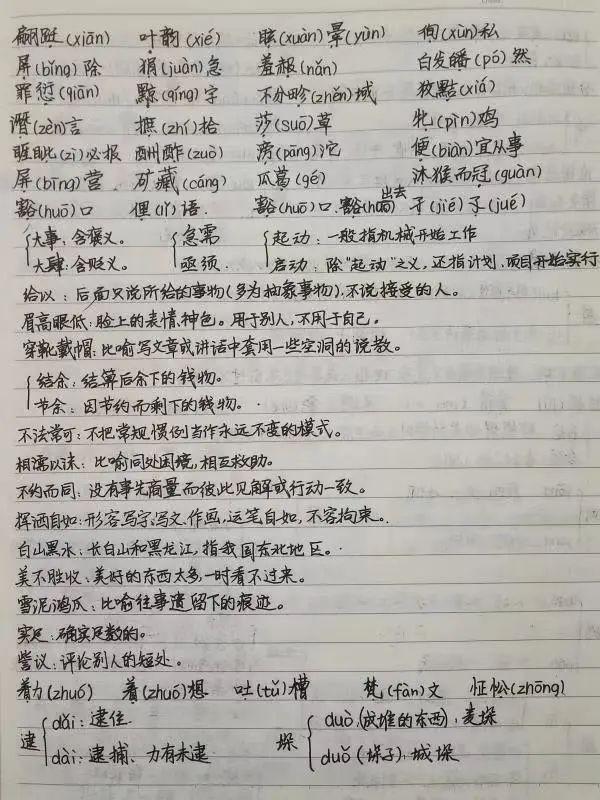 翩跹(xiān) 叶韵(xié) 眩(xuàn)晕(yùn) 徇(xùn)私
屏(bǐng)除 狷(juàn)急 羞赧(nǎn) 白发皤(pó)然
罪愆(qiān) 黥(qíng)字 不分畛(zhěn)域 狡黠(xiá)
谮(zèn)言 摭(zhí)拾 莎(suō)草 牝(pìn)鸡
睚眦(zì)必报 酬酢(zuò) 滂(pāng)沱 便(biàn)宜从事
屏(bīng)营 矿藏(cáng) 瓜葛(gé) 沐猴而冠(guàn)
豁(huō)口 俚(lǐ)语 豁(huō)口 豁(huō)出去 孑(jié)孓(jué)
大事:含褒义。 急需 起动:一般指机械开始工作
大肆:含贬义。 亟须 启动:除“起动”之义,还指计划、项目开始实行
给以:后面只说所给的事物(多为抽象事物),不说接受的人。
眉高眼低:脸上的表情、神色。用于别人,不用于自己。
穿靴戴帽:比喻写文章或讲话中套用一些空洞的说教。
结余:结算后余下的钱物。
节余:因节约而剩下的钱物。
不法常可:不把常规惯例当作永远不变的模式。
相濡以沫:比喻同处困境,相互救助。
不约而同:没有事先商量而彼此见解或行动一致。
挥洒自如:形容写字、写文、作画,运笔自如,不容拘束。
白山黑水:长白山和黑龙江,指我国东北地区。
美不胜收:美好的东西太多,一时看不过来。
雪泥鸿爪:比喻往事遗留下的痕迹。
实足:确实足数的。
訾议:评论别人的短处。
着力(zhuó) 着(zhuó)想 吐(tǔ)槽 梵(fàn)文 怔忪(zhōng)
逮 dǎi:逮住 垛 duò(成堆的东西),麦垛
dài:逮捕、力有未逮 duǒ(垛子),城垛